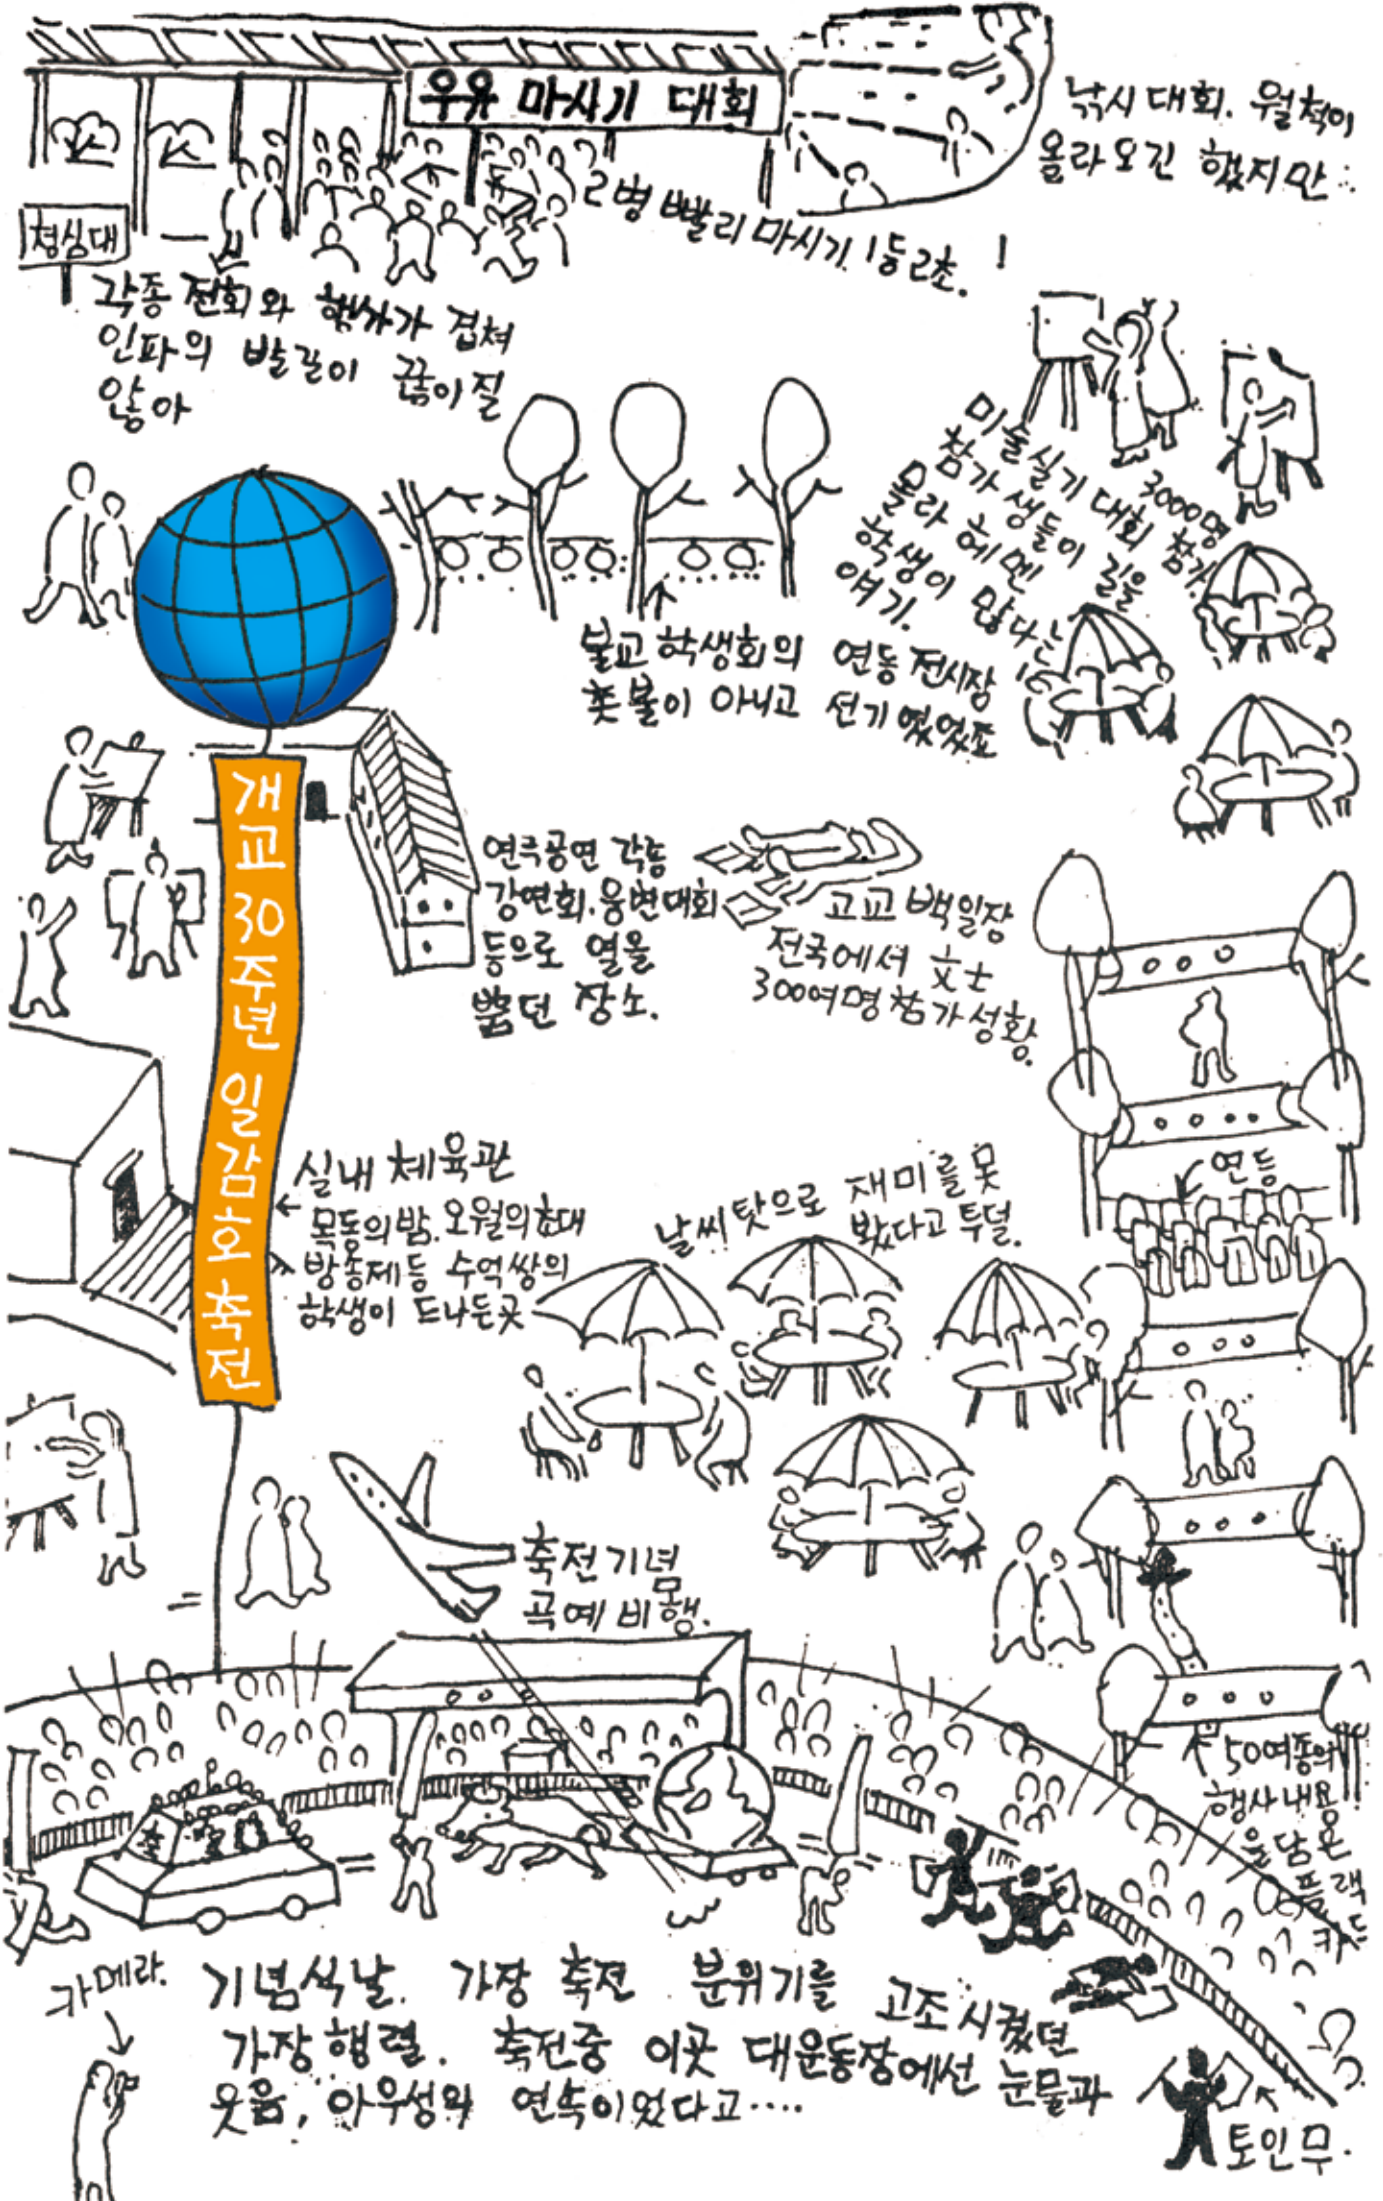 우유 마시기 대회
낚시 대회. 월척이
올라오긴 했지만..
2병 빨리 마시기. 1등 2초. !
청심대
각종 전회와 행사가 겹쳐
인파의 발길이 끊이질
않아
미술실기 대회 3000명 참가.
참가생들이 길을
몰라 헤멘
학생이 많다는
얘기.
불교 학생회의 연등 전시장
촛불이 아니고 전기였었죠
개교 30주년 일감호축전
연극공연 각종
강연회. 웅변대회
등으로 열을
뿜던 장소.
고교 백일장
전국에서 文士
300여명 참가 성황.
연등
실내 체육관
목동의 밤. 오월의 초대
방송제등 수억쌍의
학생이 드나든곳
날씨 탓으로 재미를 못
봤다고 투덜.
축전기념
곡예 비행.
50여종의
행사 내용
을 담은
플랙
카드
카메라.
기념식날. 가장 축전 분위기를 고조시켰던
가장행렬. 축전중 이곳 대운동장에선 눈물과
웃음, 아우성의 연속이었다고....
토인무.